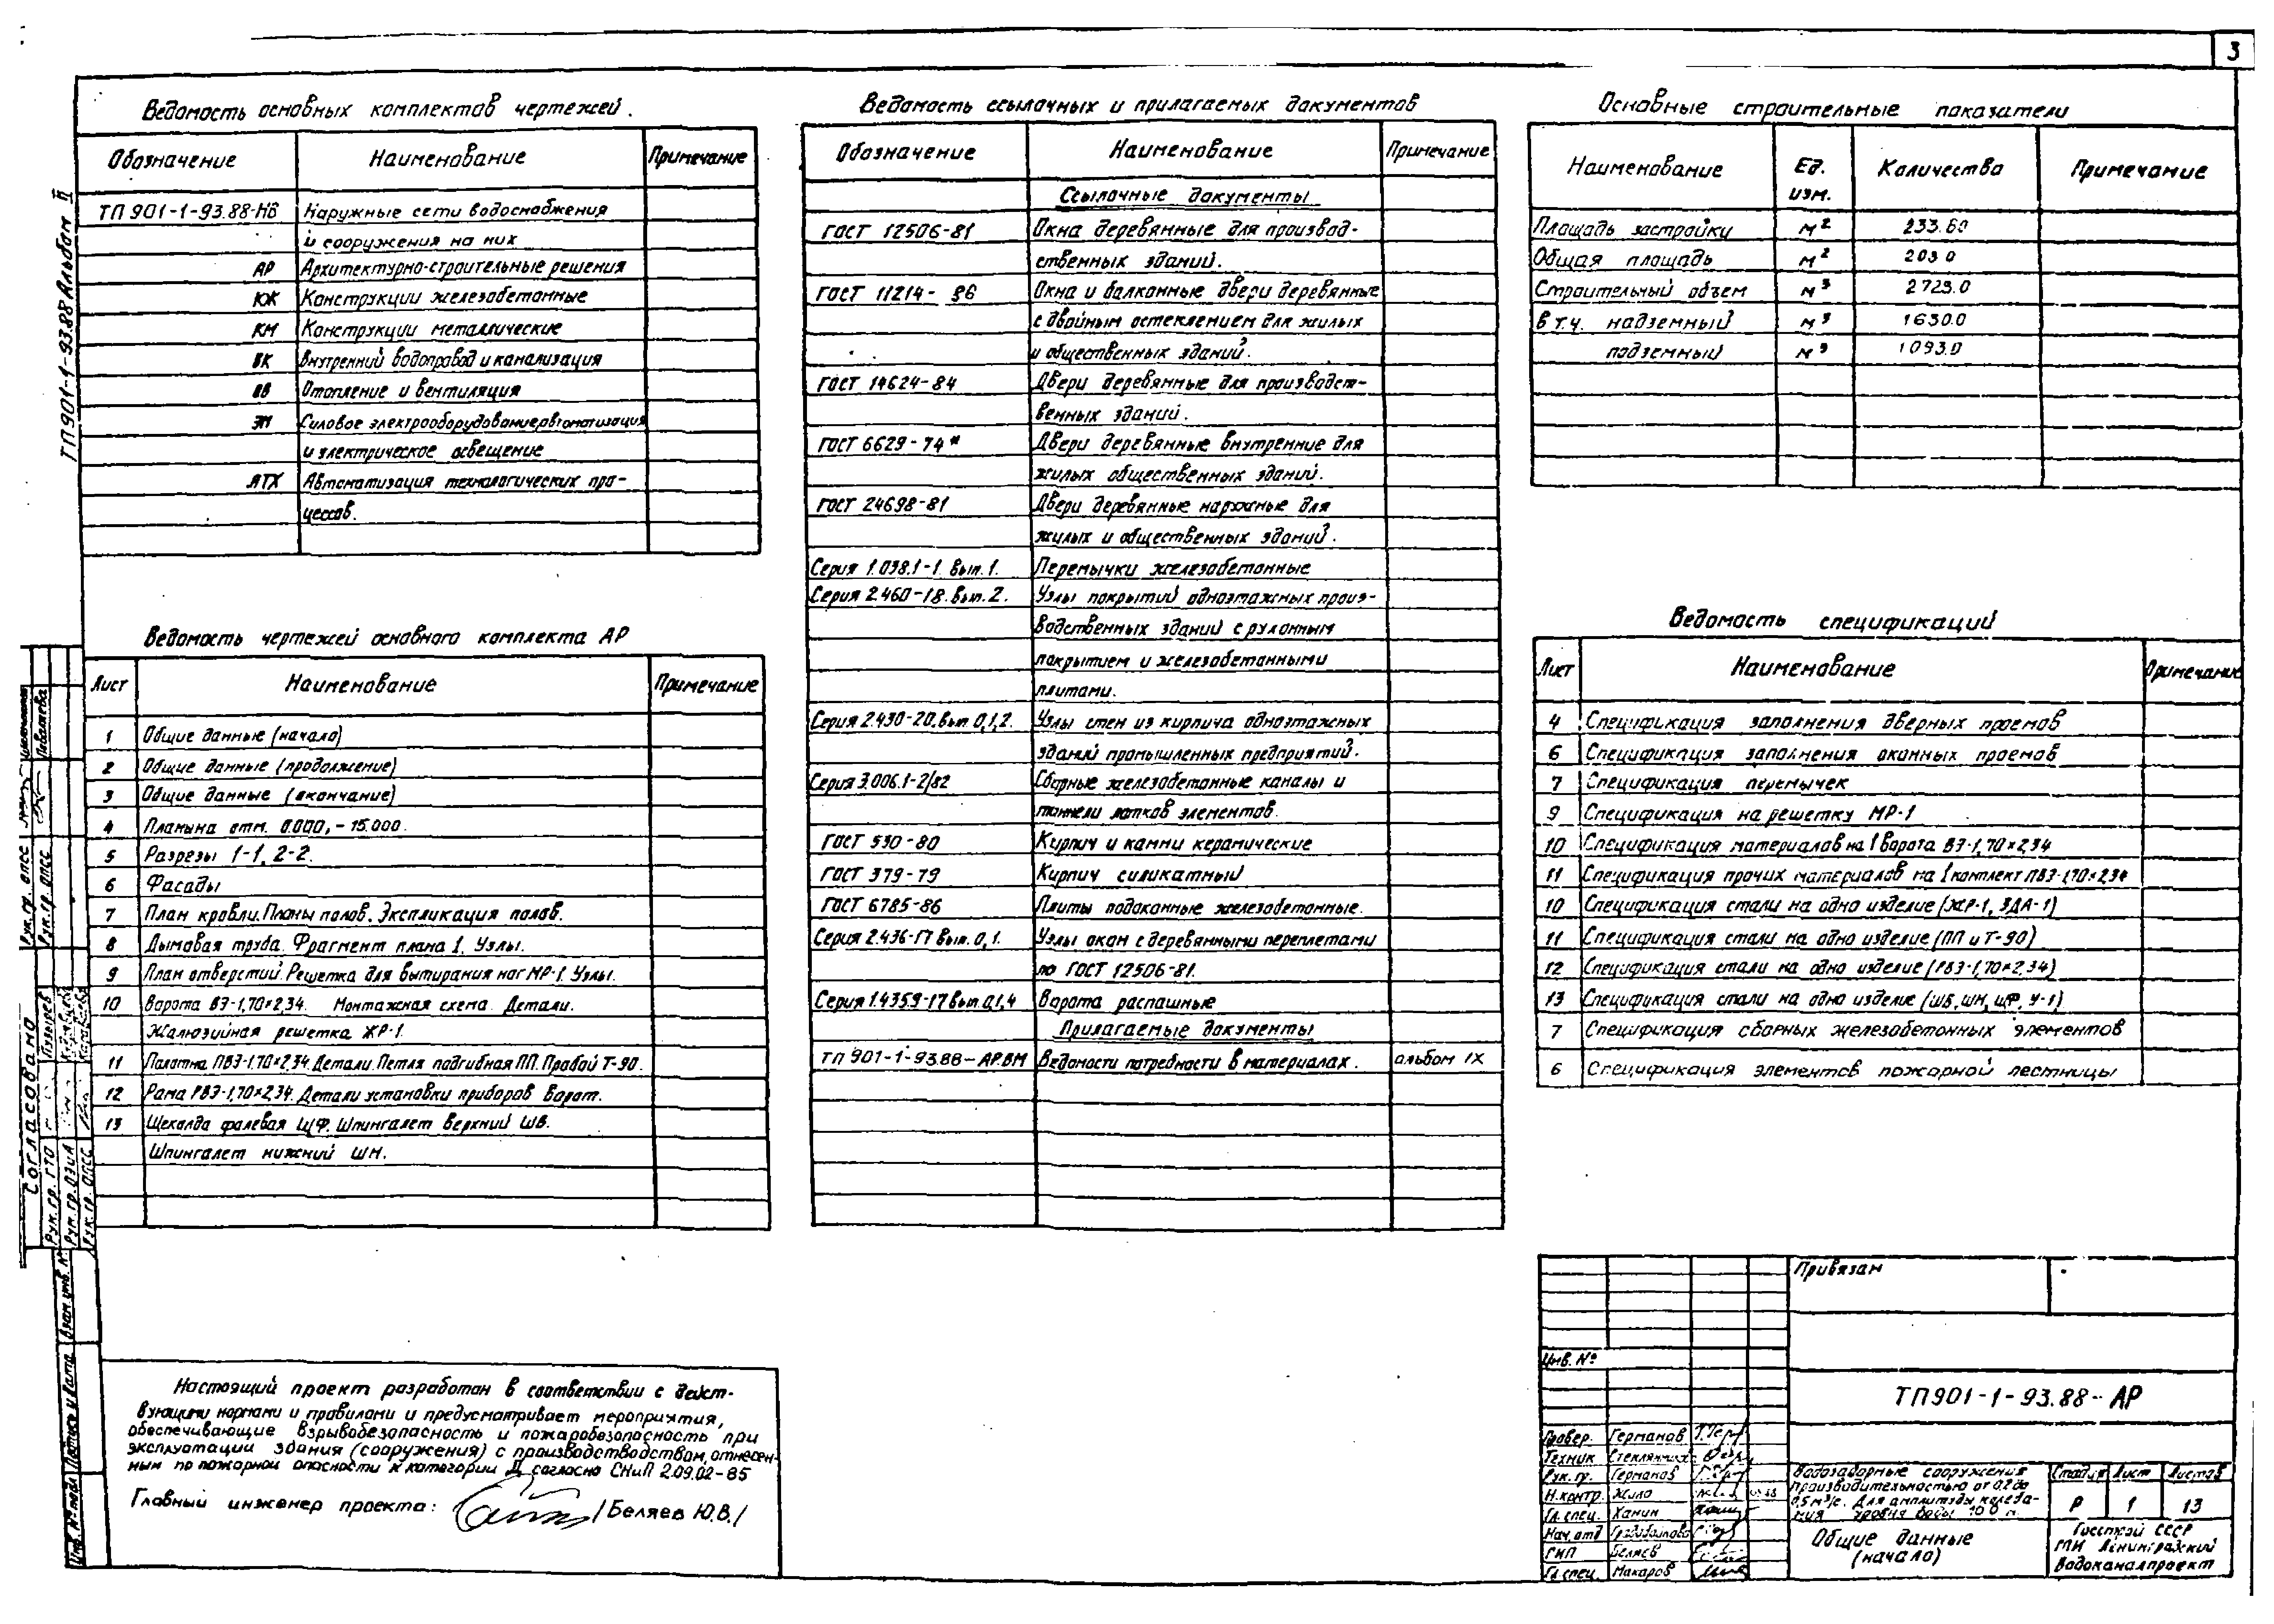 3
Ведомость основных комплектов чертежей.
Обозначение Наименование Примечание
ТП 901-1-93.88-НВ Наружные сети водоснабжения
и сооружения на них
АР Архитектурно-строительные решения
КЖ Конструкции железобетонные
КМ Конструкции металлические
ВК Внутренний водопровод и канализация
ОВ Отопление и вентиляция
ЭМ Силовое электрооборудование, автоматизация
и электрическое освещение
АТХ Автоматизация технологических про-
цессов.
Ведомость чертежей основного комплекта АР
Лист Наименование Примечание
1 Общие данные (начало)
2 Общие данные (продолжение)
3 Общие данные (окончание)
4 Планы на отм. 0.000, -15.000.
5 Разрезы 1-1, 2-2.
6 Фасады
7 План кровли. Планы полов. Экспликация полов.
8 Дымовая труба. Фрагмент плана 1. Узлы.
9 План отверстий. Решетка для вытирания ног МР-1. Узлы.
10 Ворота ВЭ-1,70×2,34. Монтажная схема. Детали.
Жалюзийная решетка ЖР-1.
11 Полотна ПВЭ-1,70×2,34. Детали. Петля подгибная ПП. Пробой Т-90.
12 Рама РВЭ-1,70×2,34. Детали установки приборов ворот.
13 Щеколда фалевая ЩФ. Шпингалет верхний ШВ.
Шпингалет нижний ШН.
Настоящий проект разработан в соответствии с дейст-
вующими нормами и правилами и предусматривает мероприятия,
обеспечивающие взрывобезопасность и пожаробезопасность при
эксплуатации здания (сооружения) с производствотводством, отнесен-
ным по пожарной опасности к категории Д согласно СНиП 2.09.02-85
Главный инженер проекта: /Беляев Ю.В./
Ведомость ссылочных и прилагаемых документов
Обозначение Наименование Примечание
Ссылочные документы
ГОСТ 12506-81 Окна деревянные для производ-
ственных зданий.
ГОСТ 11214-86 Окна и балконные двери деревянные
с двойным остеклением для жилых
и общественных зданий.
ГОСТ 14624-84 Двери деревянные для производст-
венных зданий.
ГОСТ 6629-74* Двери деревянные внутренние для
жилых общественных зданий.
ГОСТ 24698-81 Двери деревянные наружные для
жилых и общественных зданий.
Серия 1.038.1-1. Вып. 1. Перемычки железобетонные
Серия 2.460-18. Вып. 2. Узлы покрытий одноэтажных произ-
водственных зданий с рулонным
покрытием и железобетонными
плитами.
Серия 2.430-20. вып. 0,1,2. Узлы стен из кирпича одноэтажных
зданий промышленных предприятий.
Серия 3.006.1-2/82 Сборные железобетонные каналы и
тоннели лотков элементов.
ГОСТ 530-80 Кирпич и камни керамические
ГОСТ 379-79 Кирпич силикатный
ГОСТ 6785-86 Плиты подоконные железобетонные.
Серия 2.436-17 вып. 0,1. Узлы окон с деревянными переплетами
по ГОСТ 12506-81.
Серия 1.435.9-17 вып. 0,1,4 Ворота распашные
Прилагаемые документы
ТП 901-1-93.88-АР.ВМ Ведомости потребности в материалах. альбом IX
Основные строительные показатели
Наименование Ед. изм. Количество Примечание
Площадь застройки м² 233.60
Общая площадь м² 203.0
Строительный объем м³ 2723.0
В т.ч. надземный м³ 1630.0
подземный м³ 1093.0
Ведомость спецификаций
Лист Наименование Примечание
4 Спецификация заполнения дверных проемов
6 Спецификация заполнения оконных проемов
7 Спецификация перемычек
9 Спецификация на решетку МР-1
10 Спецификация материалов на 1 ворота ВЭ-1,70×2,34
11 Спецификация прочих материалов на 1 комплект ПВЭ-1,70×2,34
10 Спецификация стали на одно изделие (ЖР-1, ЗДА-1)
11 Спецификация стали на одно изделие (ПП и Т-90)
12 Спецификация стали на одно изделие (РВЭ-1,70×2,34)
13 Спецификация стали на одно изделие (ШВ, ШН, ЩФ, У-1)
7 Спецификация сборных железобетонных элементов
6 Спецификация элементов пожарной лестницы
Привязан
Инв. №
ТП901-1-93.88-АР
Провер. Германов
Техник
Рук. гр. Германов
Н.контр. Жило
Гл. спец. Ханин
Нач. отд.
ГИП Беляев
Гл. спец. Макаров
Водозаборные сооружения
производительностью от 0,2 до
0,5 м³/с. Для амплитуды колеба-
ния уровня воды 10.0 м.
Стадия Лист Листов
Р 1 13
Общие данные
(начало)
Госстрой СССР
ГПИ Ленинградский
Водоканалпроект
ТП901-1-93.88 Альбом II
Согласовано
Рук. гр. ОПСС
Рук. гр. ОПСС
Рук. гр. ГТО
Рук. гр. ОЭиА
Рук. гр. ОПСС
Взам. инв. №
Подпись и дата
Инв. № подл.